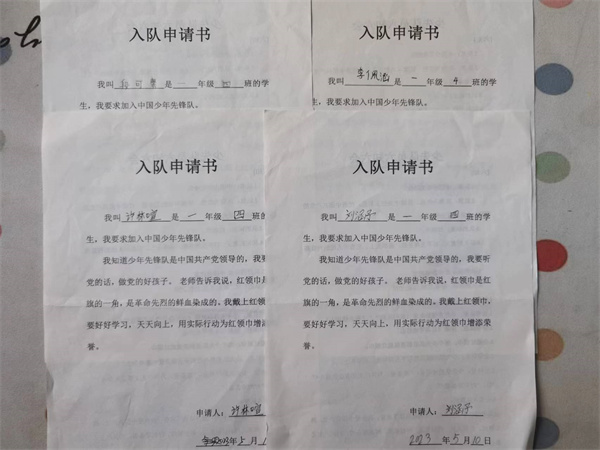 入队申请书
我叫 是 一 年级 四 班的学
生，我要求加入中国少年先锋队。
入队申请书
我叫 李佩涵 是 一 年级 4 班的学
生，我要求加入中国少年先锋队。
入队申请书
我叫 沙林暄 是 一 年级 四 班的
生，我要求加入中国少年先锋队。
我知道少年先锋队是中国共产党领导的，我要
党的话，做党的好孩子。老师告诉我说，红领巾是
旗的一角，是革命先烈的鲜血染成的。我戴上红领
要好好学习，天天向上，用实际行动为红领巾增
誉。
申请人：沙林暄
年5月
入队申请书
我叫 是 一 年级 四 班的学
生，我要求加入中国少年先锋队。
我知道少年先锋队是中国共产党领导的，我要听
党的话，做党的好孩子。老师告诉我说，红领巾是红
旗的一角，是革命先烈的鲜血染成的。我戴上红领巾，
要好好学习，天天向上，用实际行动为红领巾增添荣
誉。
申请人：
2023 年 5 月 10 日